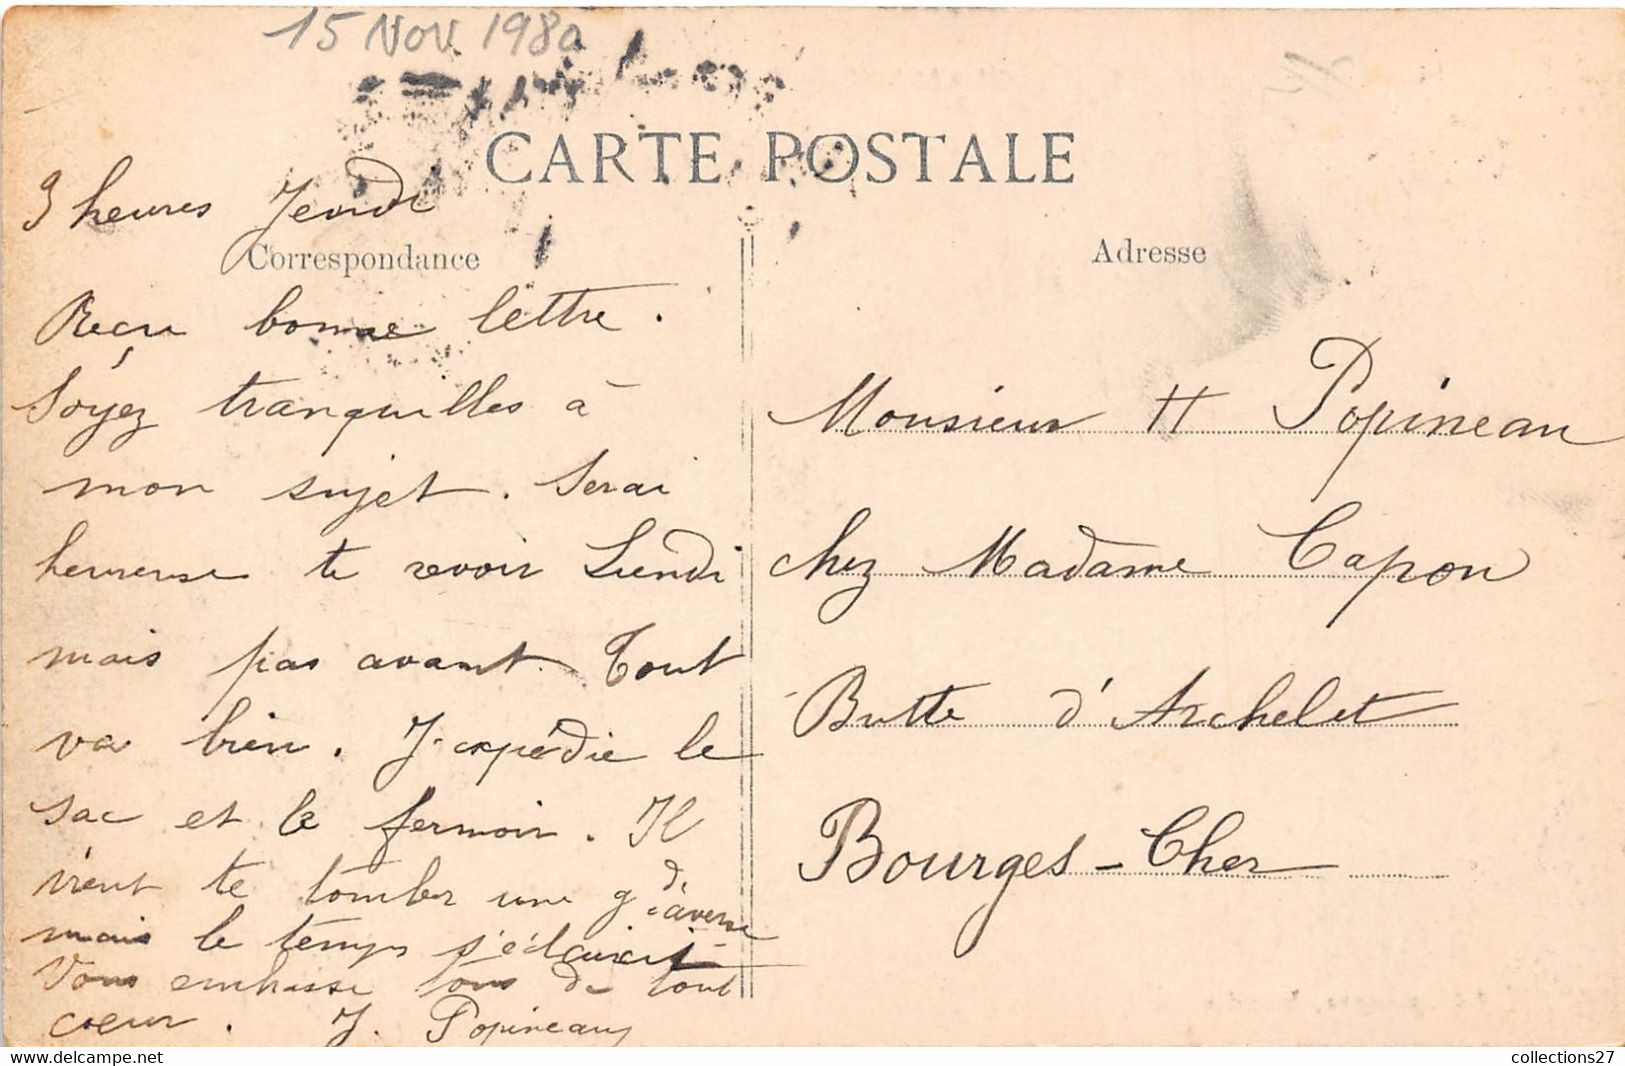 15 Nov 1980
CARTE POSTALE
3 heures Jeudi
Correspondance
Reçu bonne lettre.
Soyez tranquilles à
mon sujet. Serai
heureuse te revoir Lundi
mais pas avant. Tout
va bien. J'expédie le
sac et le fermoir. Il
vient te tomber une gde averse
mais le temps s'éclaircit
Vous embrasse tous de tout
cœur. J. Popineau
Adresse
Monsieur H Popineau
chez Madame Capon
Butte d'Archelet
Bourges - Cher
collections27